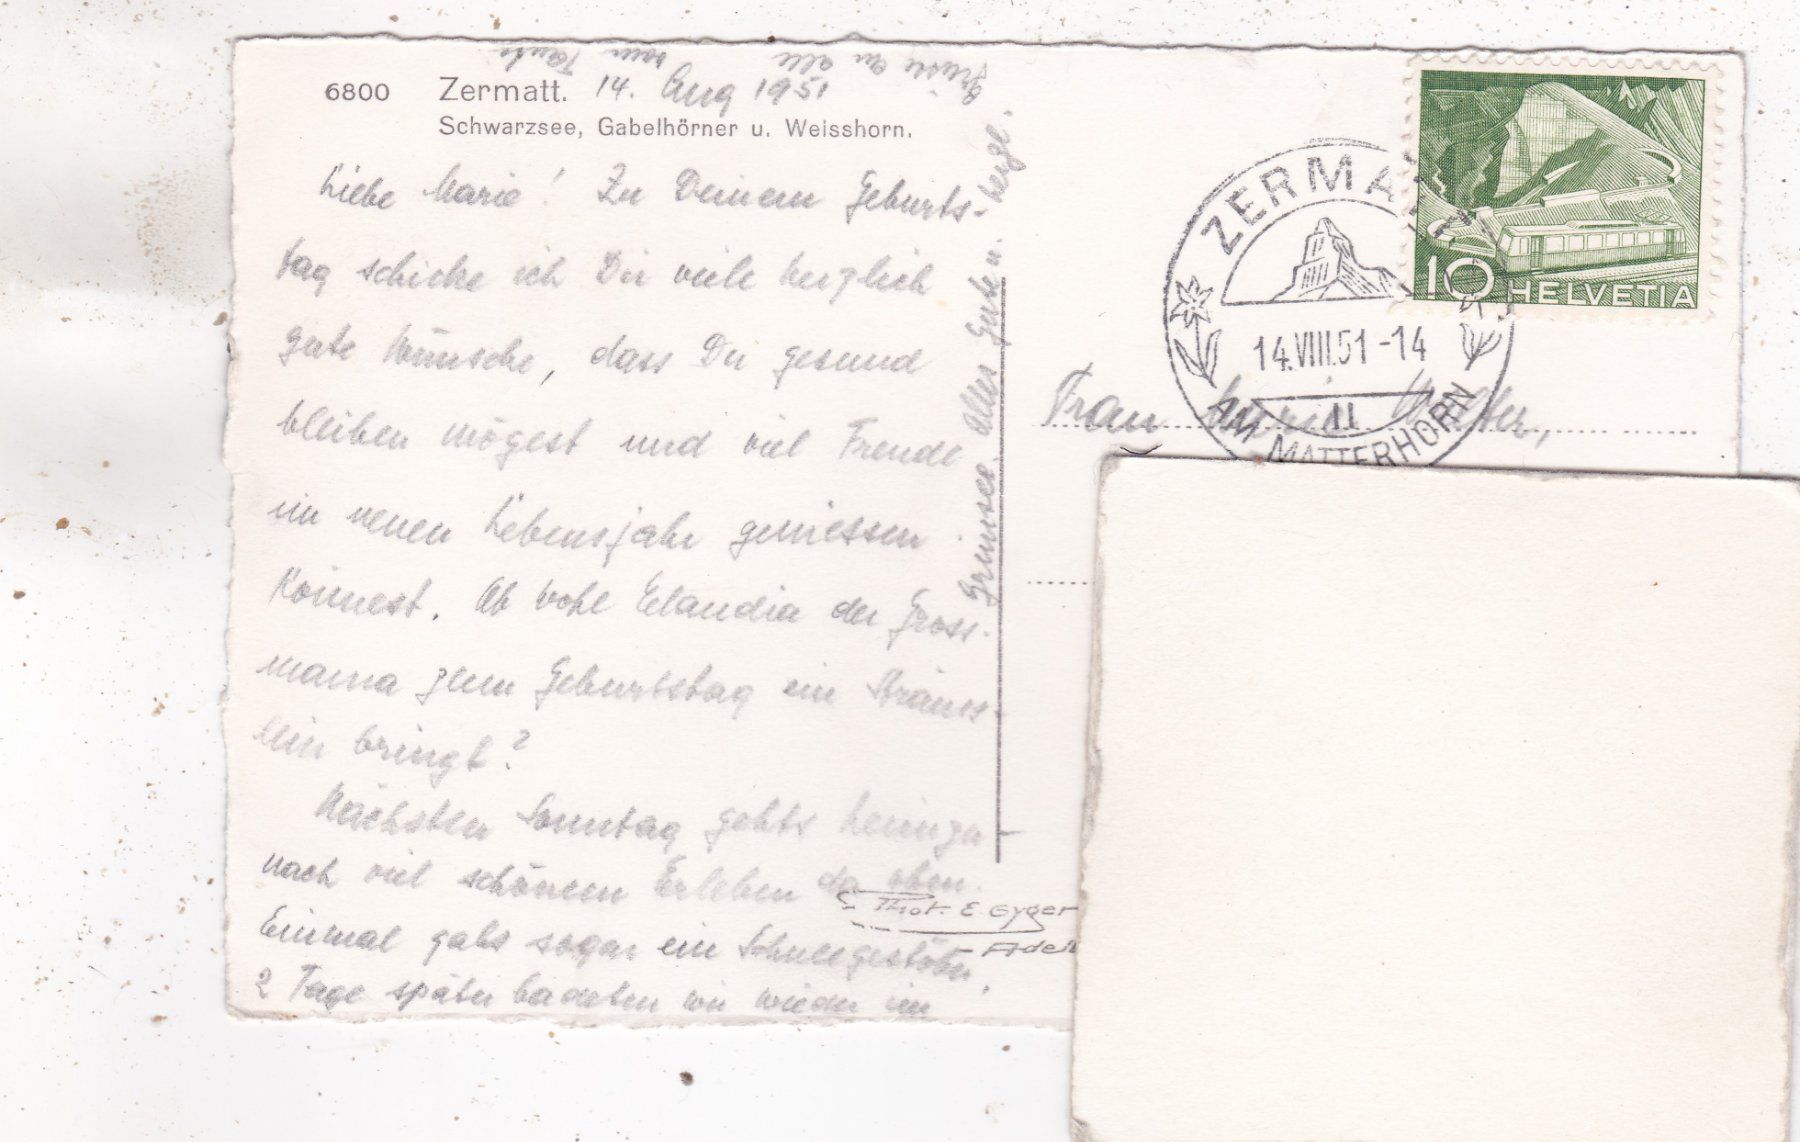 6800 Zermatt. 14. Aug 1951
Schwarzsee, Gabelhörner u. Weisshorn.
Liebe Marie! Zu Deinem Geburts-
tag schicke ich Dir viele herzlich
gute Wünsche, dass Du gesund
bleiben mögest und viel Freude
im neuen Lebensjahr geniessen
könnest. Ob wohl Claudia der Gross-
mama zum Geburtstag ein Sträuss-
lein bringt?
Nächsten Sonntag gehts heimzu-
nach viel schönem Erleben da oben.
Einmal gabs sogar ein Schneegestöber.
2 Tage später badeten wir wieder im
Grünsee. Alles Gute u. herzl.
Grüsse an alle
Tante
Phot. E. Gyger
Adel
ZERMATT
14.VIII.51-14
AM MATTERHORN
10 HELVETIA
Frau